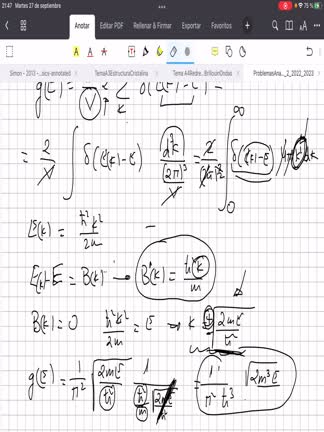 21:47 Martes 27 de septiembre
75 %
Anotar Editar PDF Rellenar & Firmar Exportar Favoritos
Simon - 2013 - ...sics-annotated TemaA3EstructuraCristalina TemaA4Redre... BrillouinOndas ProblemasAna..._2_2022_2023
g(E) = 2/V Σ_k δ(E(k)-E) =
= 2/V ∫ δ(E(k)-E) d³k / (2π)³/V = ∫₀^∞ δ(E(k)-E) dk
E(k) = ħ²k²/2m
E(k)-E = B(k) → B'(k) = ħ²k/m
B(k) = 0 ħ²k²/2m = E → k = ± √(2mE/ħ²)
g(E) = 1/π² √(2mE/ħ²) 1/(ħ²/m) = 1/(π²ħ³) √(2m³E)